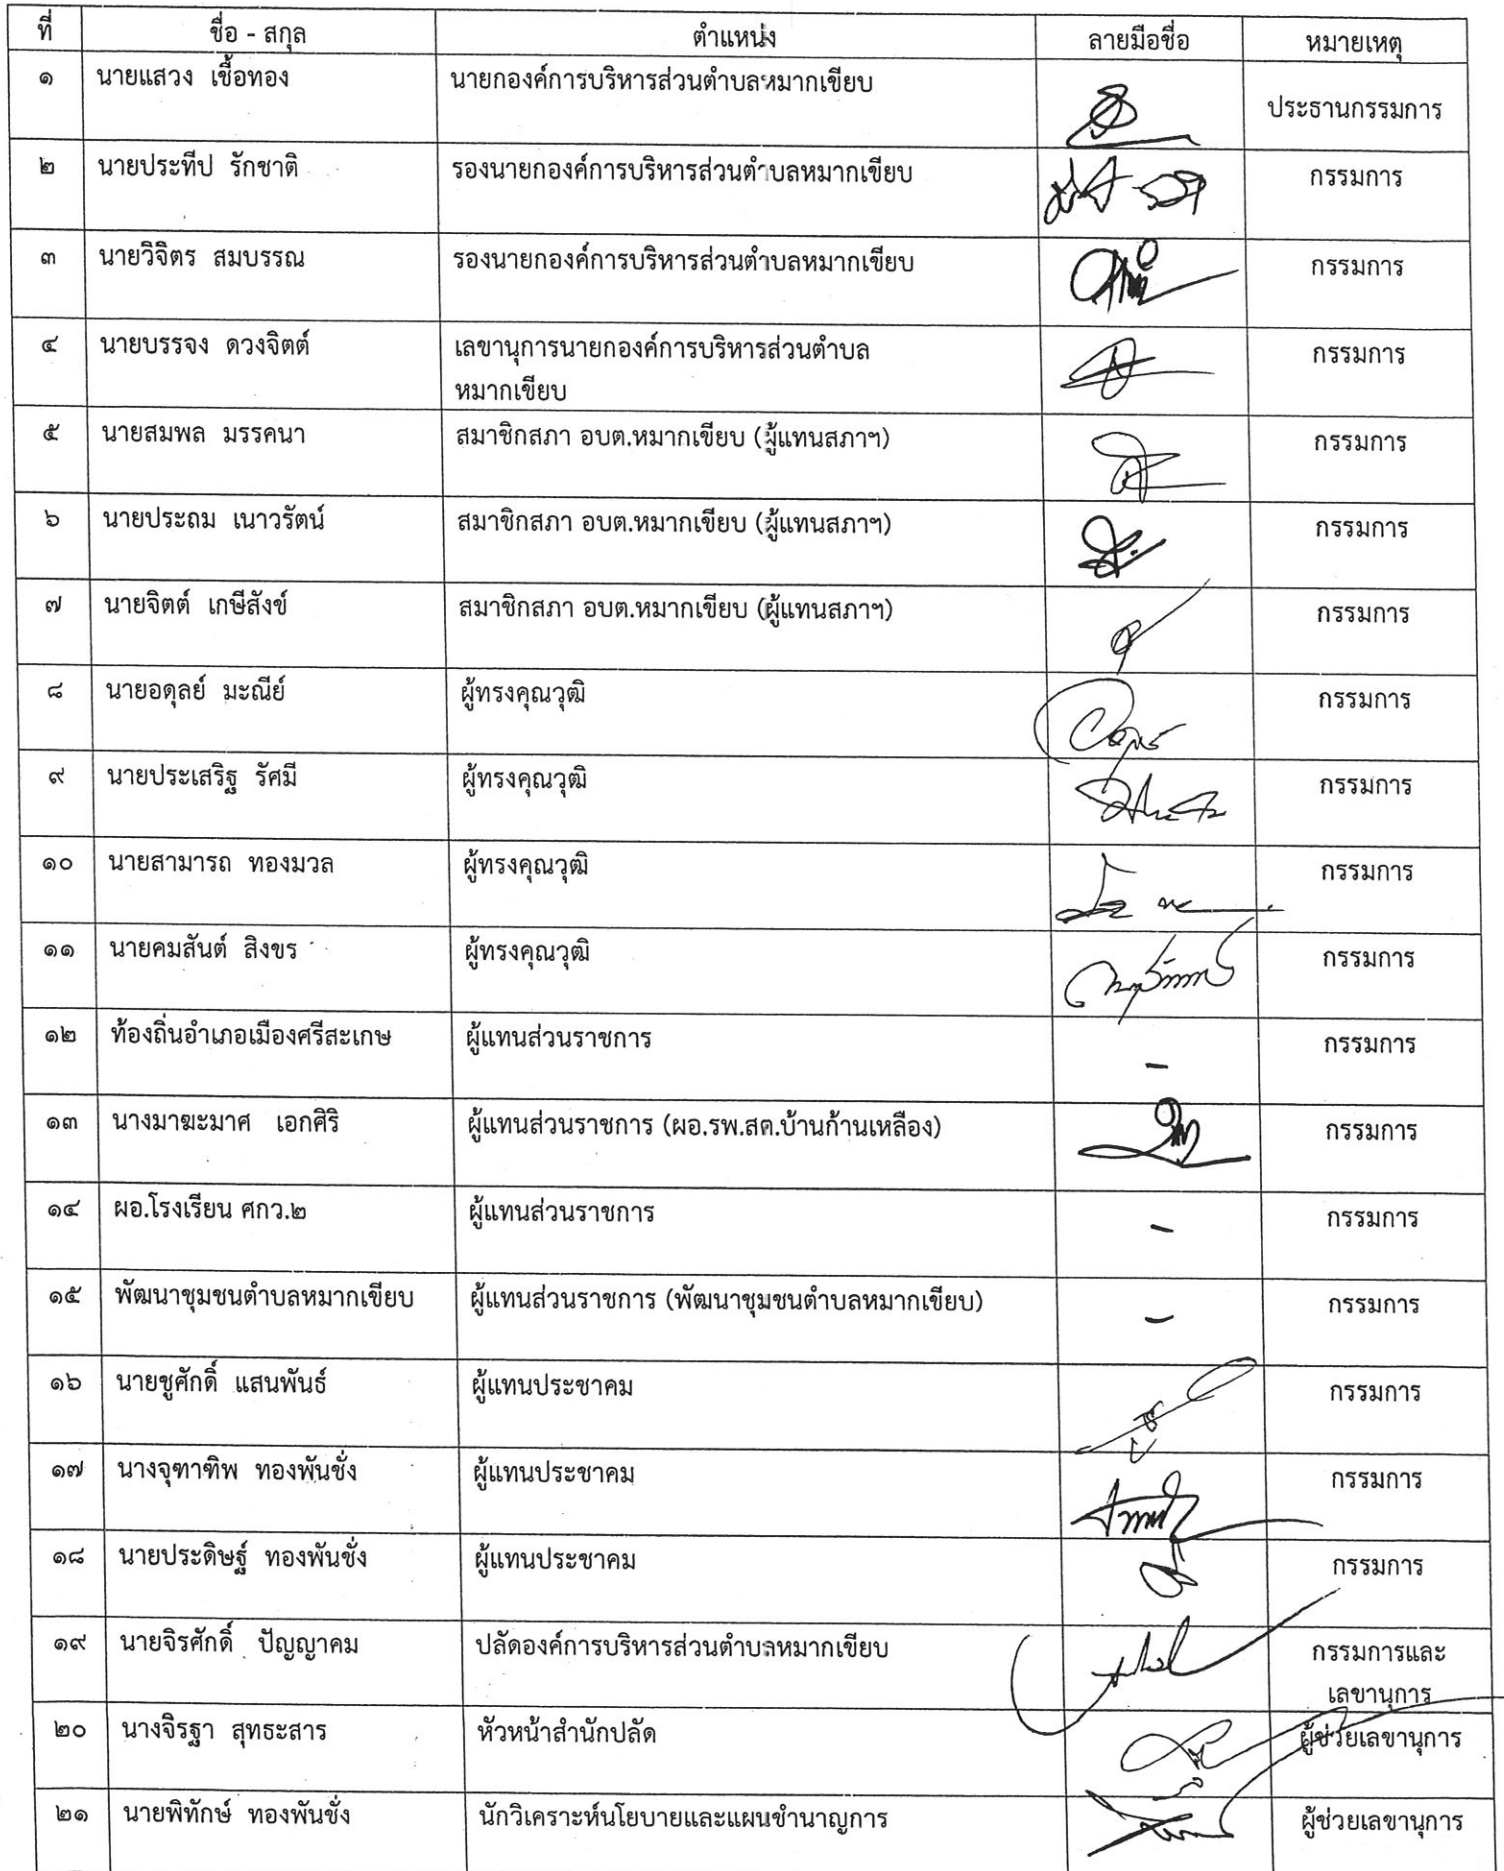 ที่ ชื่อ - สกุล ตำแหน่ง ลายมือชื่อ หมายเหตุ
๑ นายแสวง เชื้อทอง นายกองค์การบริหารส่วนตำบลหมากเขียบ ประธานกรรมการ
๒ นายประทีป รักชาติ รองนายกองค์การบริหารส่วนตำบลหมากเขียบ กรรมการ
๓ นายวิจิตร สมบรรณ รองนายกองค์การบริหารส่วนตำบลหมากเขียบ กรรมการ
๔ นายบรรจง ดวงจิตต์ เลขานุการนายกองค์การบริหารส่วนตำบล กรรมการ
หมากเขียบ
๕ นายสมพล มรรคนา สมาชิกสภา อบต.หมากเขียบ (ผู้แทนสภาฯ) กรรมการ
๖ นายประถม เนาวรัตน์ สมาชิกสภา อบต.หมากเขียบ (ผู้แทนสภาฯ) กรรมการ
๗ นายจิตต์ เกษีสังข์ สมาชิกสภา อบต.หมากเขียบ (ผู้แทนสภาฯ) กรรมการ
๘ นายอดุลย์ มะณีย์ ผู้ทรงคุณวุฒิ กรรมการ
๙ นายประเสริฐ รัศมี ผู้ทรงคุณวุฒิ กรรมการ
๑๐ นายสามารถ ทองมวล ผู้ทรงคุณวุฒิ กรรมการ
๑๑ นายคมสันต์ สิงขร ผู้ทรงคุณวุฒิ กรรมการ
๑๒ ท้องถิ่นอำเภอเมืองศรีสะเกษ ผู้แทนส่วนราชการ - กรรมการ
๑๓ นางมาฆะมาศ เอกศิริ ผู้แทนส่วนราชการ (ผอ.รพ.สต.บ้านก้านเหลือง) กรรมการ
๑๔ ผอ.โรงเรียน ศกว.๒ ผู้แทนส่วนราชการ - กรรมการ
๑๕ พัฒนาชุมชนตำบลหมากเขียบ ผู้แทนส่วนราชการ (พัฒนาชุมชนตำบลหมากเขียบ) - กรรมการ
๑๖ นายชูศักดิ์ แสนพันธ์ ผู้แทนประชาคม กรรมการ
๑๗ นางจุฑาฑิพ ทองพันชั่ง ผู้แทนประชาคม กรรมการ
๑๘ นายประดิษฐ์ ทองพันชั่ง ผู้แทนประชาคม กรรมการ
๑๙ นายจิรศักดิ์ ปัญญาคม ปลัดองค์การบริหารส่วนตำบลหมากเขียบ กรรมการและ
เลขานุการ
๒๐ นางจิรฐา สุทธะสาร หัวหน้าสำนักปลัด ผู้ช่วยเลขานุการ
๒๑ นายพิทักษ์ ทองพันชั่ง นักวิเคราะห์นโยบายและแผนชำนาญการ ผู้ช่วยเลขานุการ